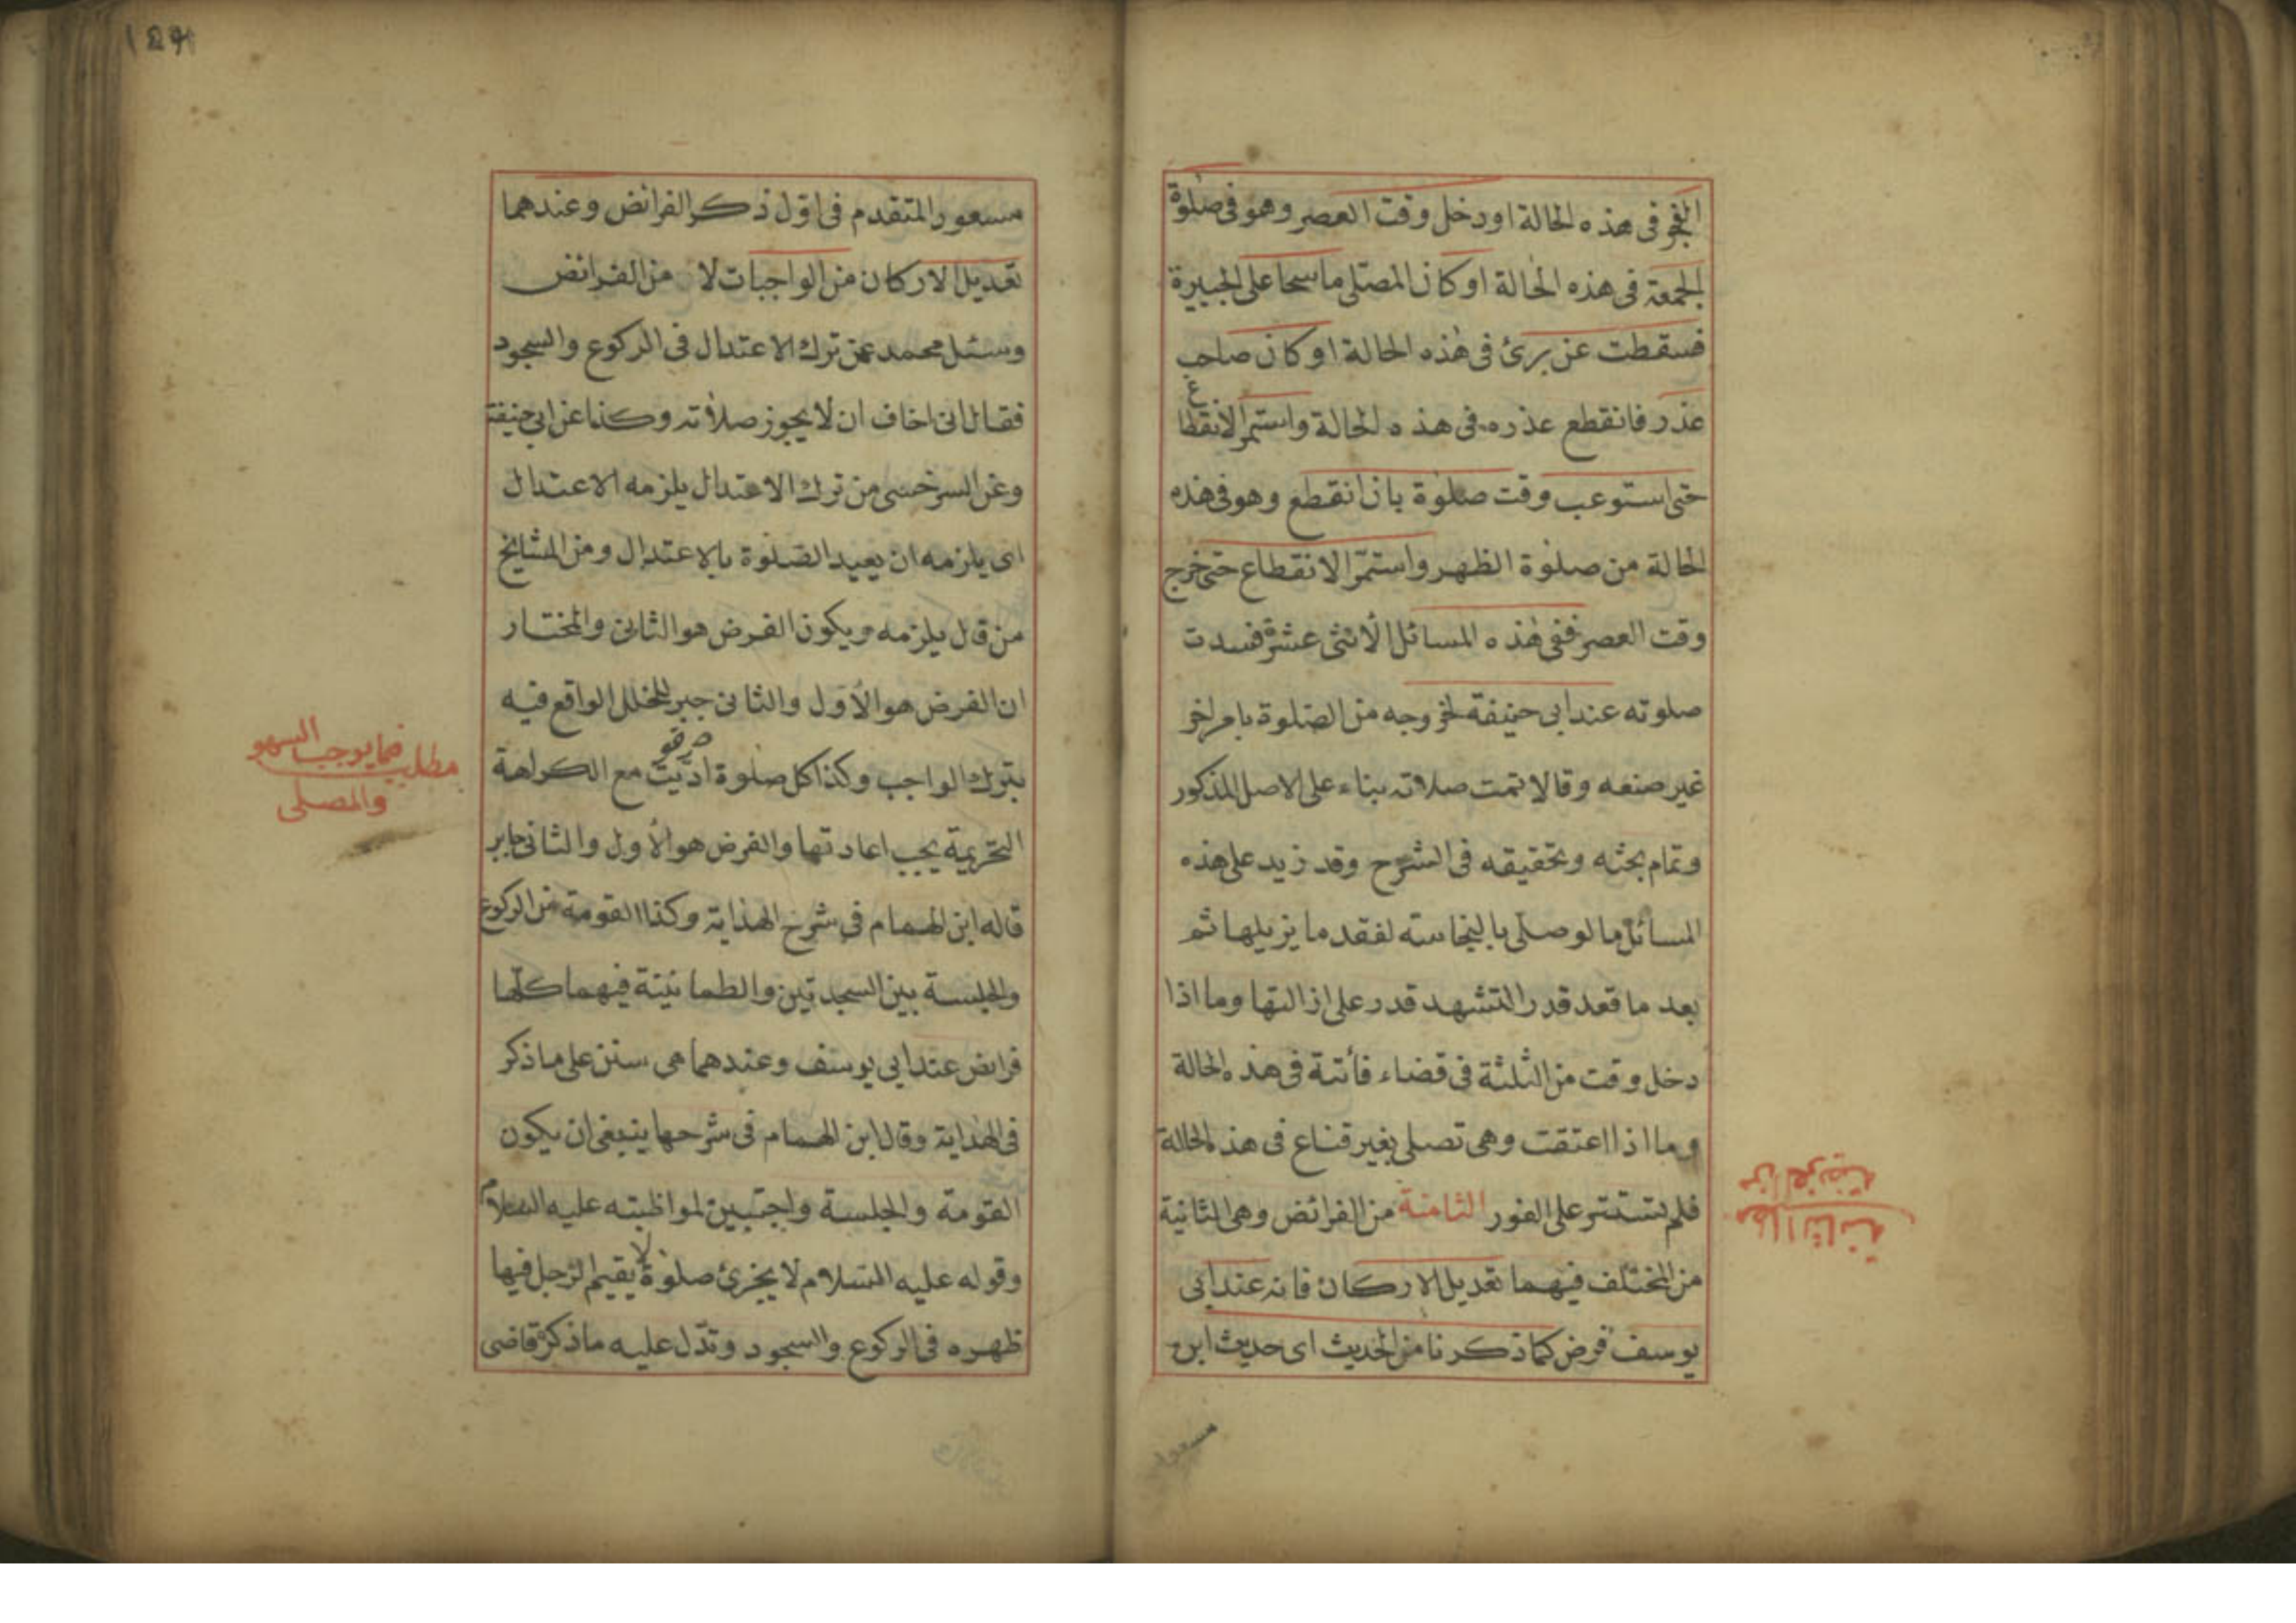 الفجر فى هذه الحالة او دخل وقت العصر وهو فى صلوة
الجمعة فى هذه الحالة او كان المصلى ماسحا على الجبيرة
فسقطت عن برئ فى هذه الحالة او كان صاحب
عذر فانقطع عذره فى هذه الحالة واستمر الانقطاع
حتى استوعب وقت صلوة بان انقطع وهو فى هذه
الحالة من صلوة الظهر واستمر الانقطاع حتى خرج
وقت العصر ففى هذه المسائل الاثنى عشرة فسدت
صلوته عند ابى حنيفة لخروجه من الصلوة بامر اخر
غير صنعه وقالا تمت صلاته بناء على الاصل المذكور
وتمام بحثه وتحقيقه فى الشرح وقد زيد على هذه
المسائل ما لو صلى بالنجاسته لفقد ما يزيلها ثم
بعد ما قعد قدر التشهد قدر على ازالتها وما اذا
دخل وقت من الثلثة فى قضاء فائتة فى هذه الحالة
وما اذا اعتقت وهى تصلى بغير قناع فى هذه الحالة
فلم تستتر على الفور الثامنة من الفرائض وهى الثانية
من المختلف فيهما تعديل الاركان فانه عند ابى
يوسف فرض كما ذكرنا من الحديث اى حديث ابن
مسعود
مسعود المتقدم فى اول ذكر الفرائض وعندهما
تعديل الاركان من الواجبات لا من الفرائض
وسئل محمد عمن ترك الاعتدال فى الركوع والسجود
فقال انى اخاف ان لا يجوز صلاته وكذا عن ابى حنيفة
وعن السرخسى من ترك الاعتدال يلزمه الاعتدال
اى يلزمه ان يعيد الصلوة بالاعتدال ومن المشايخ
من قال يلزمه ويكون الفرض هو الثانى والمختار
ان الفرض هو الاول والثانى جبر للخلل الواقع فيه
بترك الواجب وكذا كل صلوة اديت مع الكراهة
التحريمة يجب اعادتها والفرض هو الاول والثانى جابر
قاله ابن الهمام فى شرح الهداية وكذا القومة من الركوع
والجلسة بين السجدتين والطمانينة فيهما كلها
فرايض عند ابى يوسف وعندهما هى سنن على ما ذكر
فى الهداية وقال ابن الهمام فى شرحها ينبغى ان يكون
القومة والجلسة واجبتين لمواظبته عليه السلام
وقوله عليه السلام لا يجزئ صلوة لا يقيم الرجل فيها
ظهره فى الركوع والسجود وتدل عليه ما ذكره قاضى
مطلب فيما يوجب السهو
والمصلى